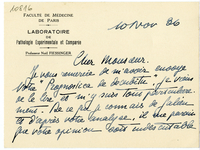 10816
FACULTÉ DE MÉDECINE
DE PARIS
LABORATOIRE
DE
Pathologie Expérimentale et Comparée
Professeur Noël FIESSINGER
10 Nov 36
Cher Monsieur,
Je vous remercie de m'avoir envoyé
votre Prognosica de . Je vais
le lire et m'y suis tout particulièrement
. De ce que je connais de
et d'après votre analyse, il me paraît
que votre opinion soit indiscutable